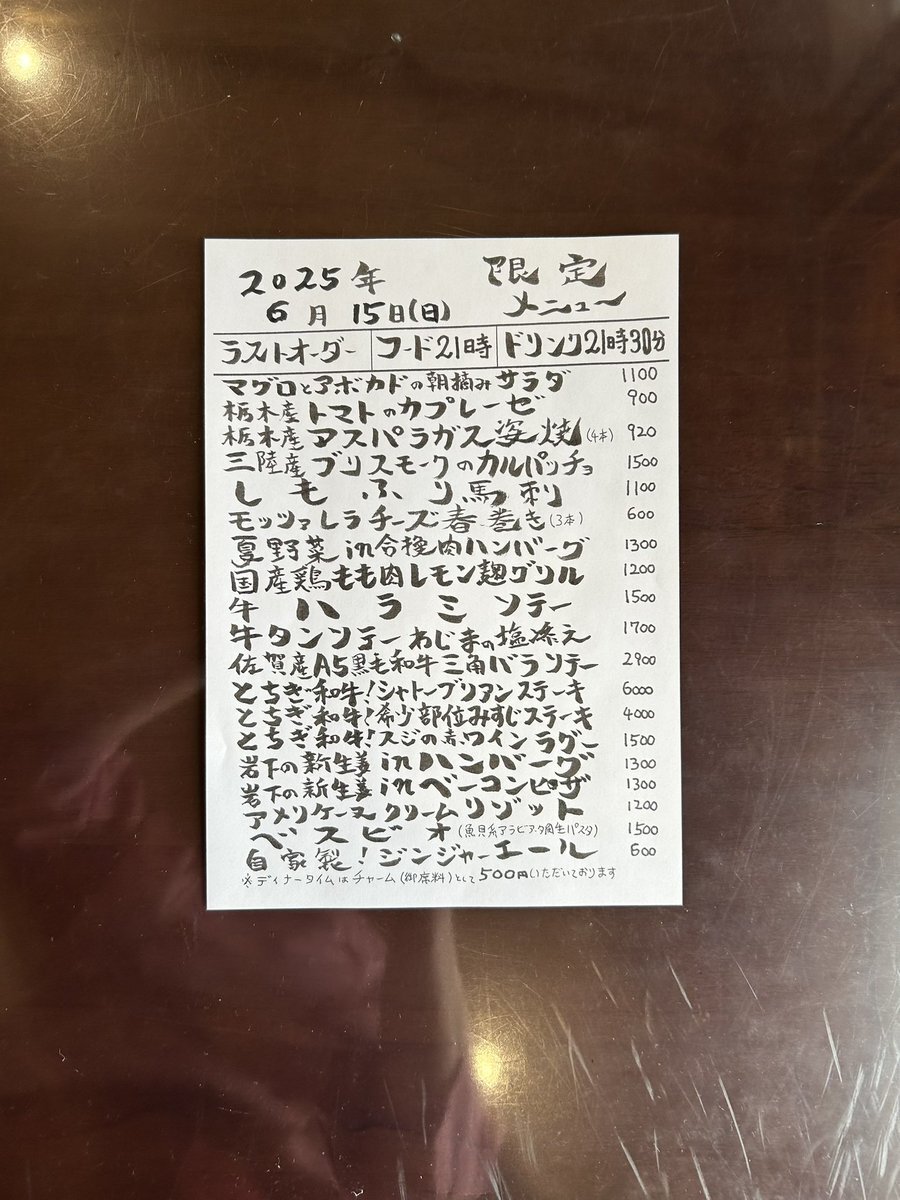 2025年 限定
6月15日(日) メニュー
ラストオーダー フード21時 ドリンク21時30分
マグロとアボカドの朝摘みサラダ 1100
栃木産トマトのカプレーゼ 900
栃木産アスパラガス姿焼(4本) 920
三陸産ブリスモークのカルパッチョ 1500
しもふり馬刺 1100
モッツァレラチーズ春巻き(3本) 600
夏野菜in合挽肉ハンバーグ 1300
国産鶏もも肉レモン麹グリル 1200
牛ハラミソテー 1500
牛タンソテーわじまの塩添え 1700
佐賀産A5黒毛和牛三角バラソテー 2900
とちぎ和牛!シャトーブリアンステーキ 6000
とちぎ和牛!希少部位みすじステーキ 4000
とちぎ和牛!スジの赤ワインラグー 1500
岩下の新生姜inハンバーグ 1300
岩下の新生姜inベーコンピザ 1300
アメリケーヌクリームリゾット 1200
ベスビオ(魚貝系アラビアータ生パスタ) 1500
自家製!ジンジャーエール 600
※ディナータイムはチャーム(御席料)として500円いただいております